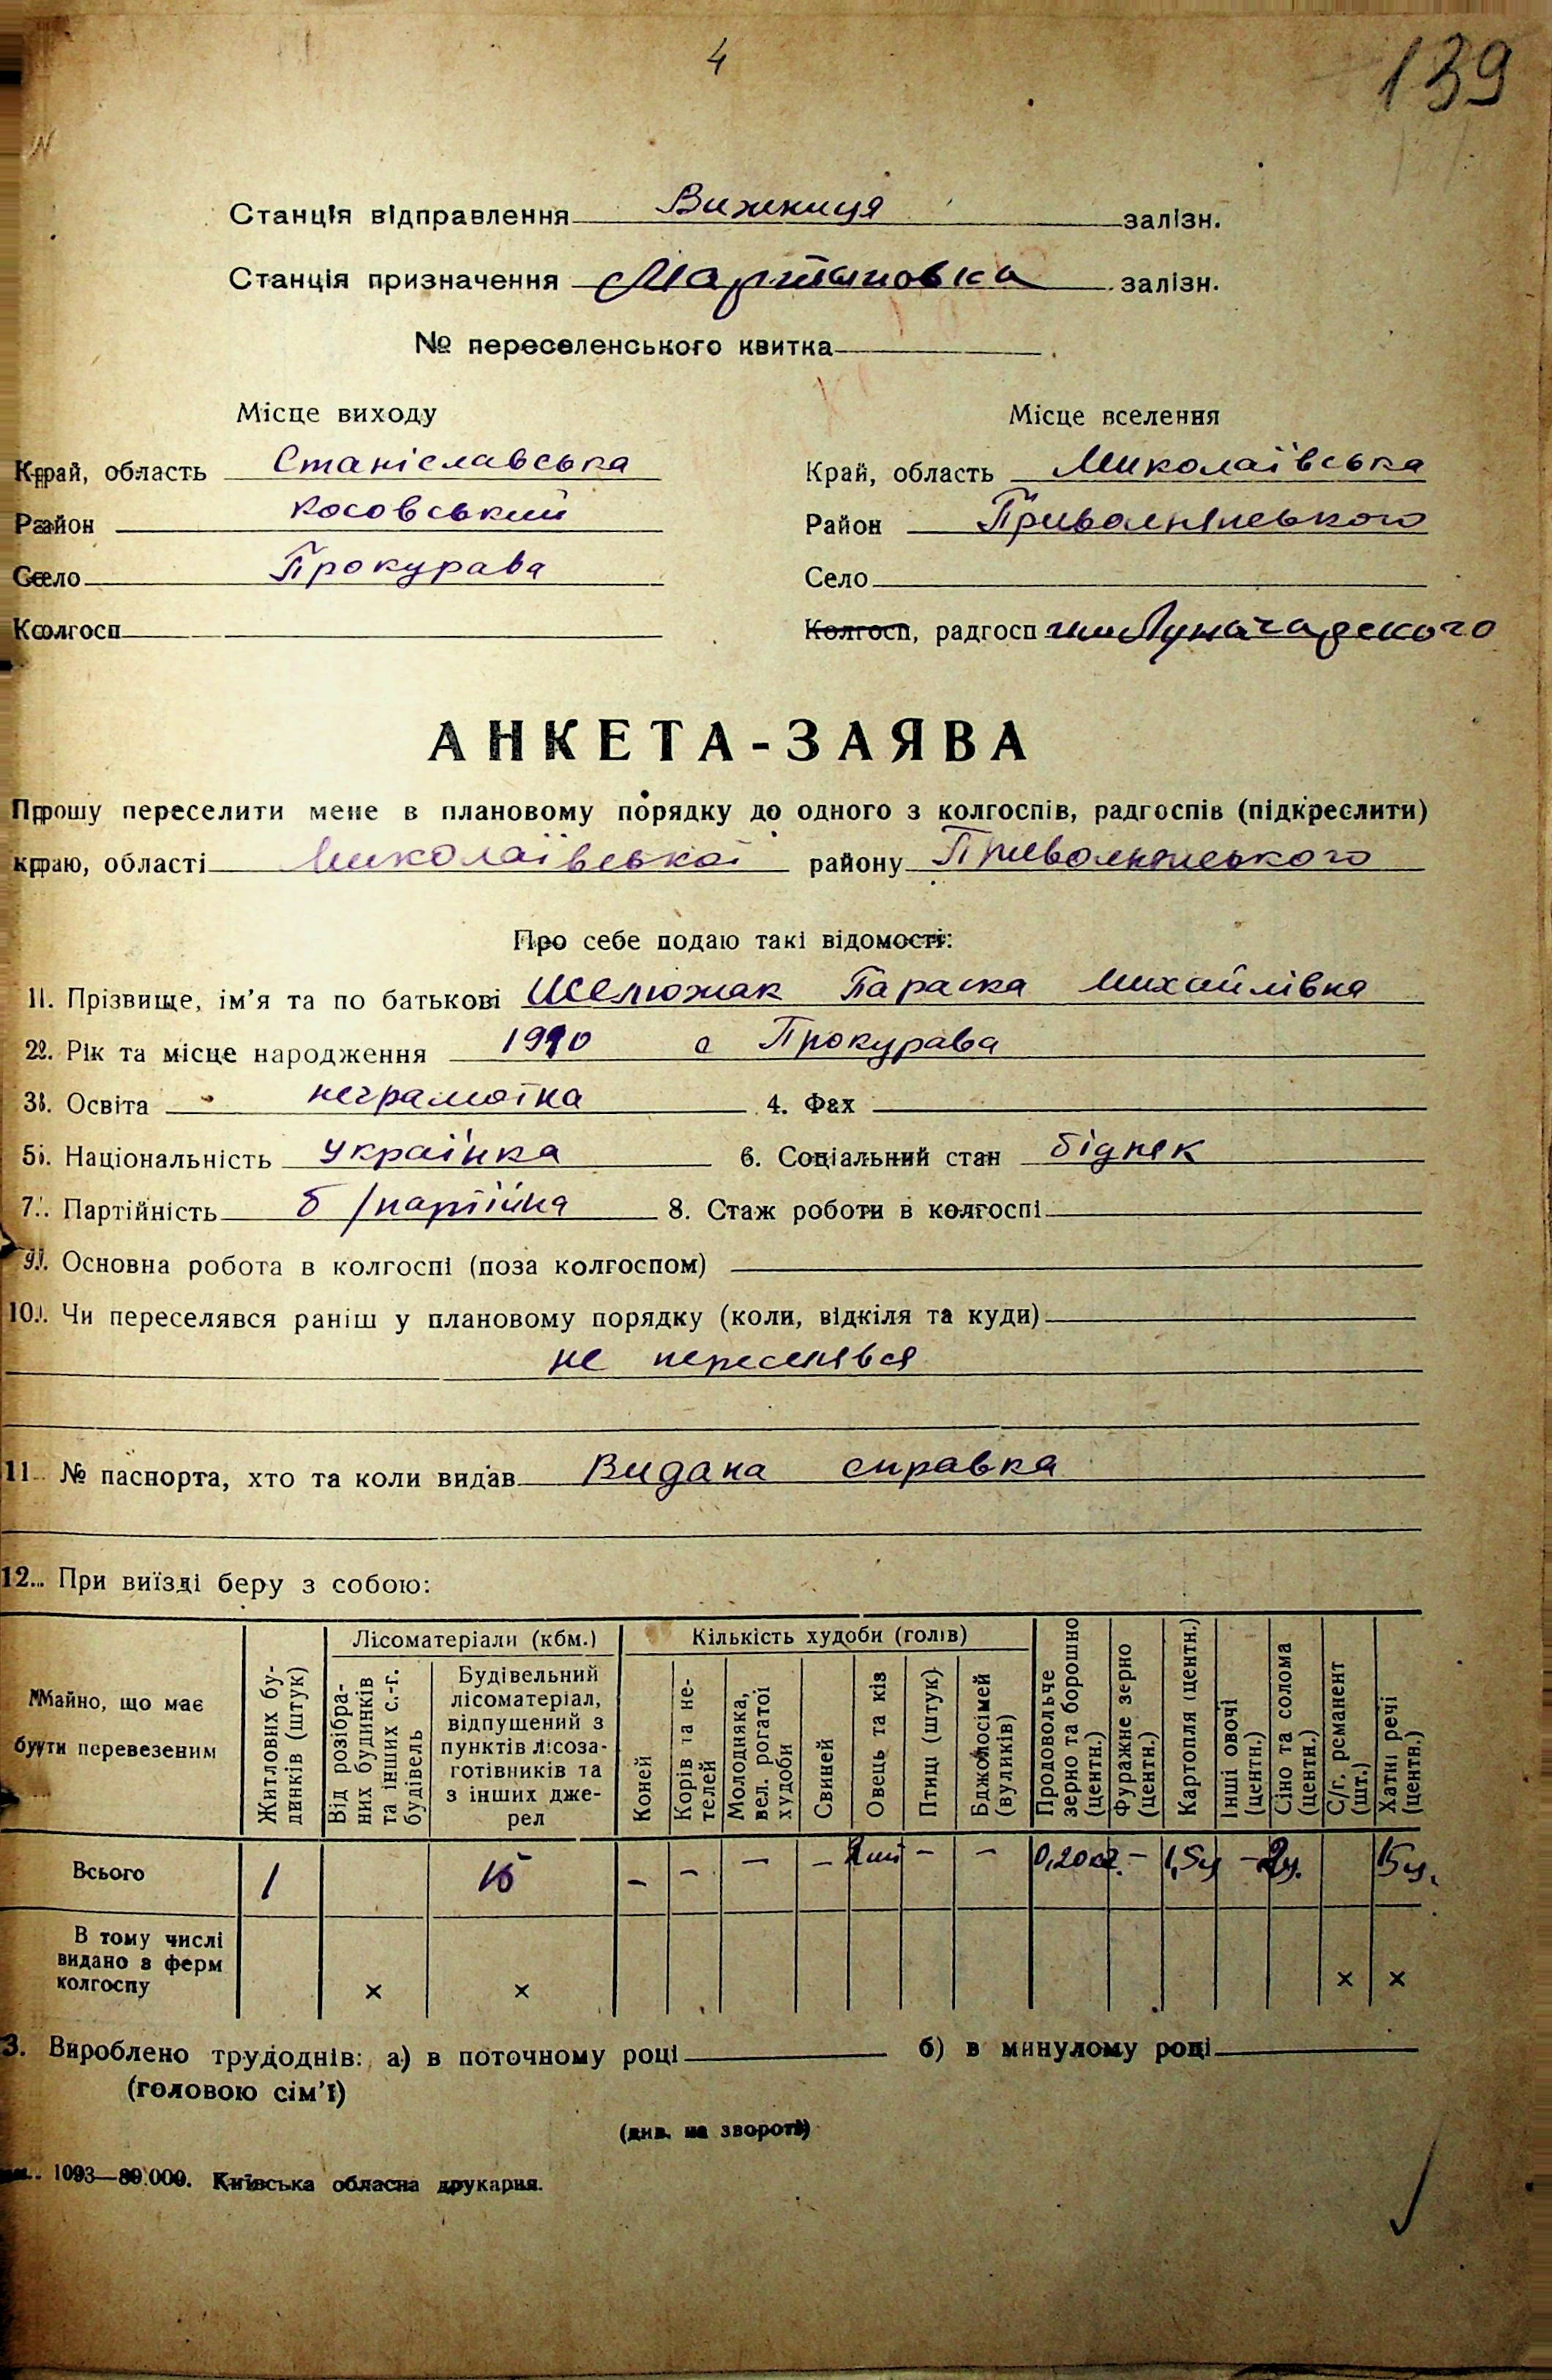 4
139
Станція відправлення Вижниця залізн.
Станція призначення Мартыновка залізн.
№ переселенського квитка
Місце виходу
Місце вселення
Край, область Станіславська
Край, область Миколаївська
Район Косовський
Район Привольнянського
Село Прокурава
Село
Колгосп
Колгосп, радгосп им Луначарского
АНКЕТА-ЗАЯВА
Прошу переселити мене в плановому порядку до одного з колгоспів, радгоспів (підкреслити)
краю, області Миколаївської району Привольнянського
Про себе подаю такі відомості:
1. Прізвище, ім'я та по батькові Шелюжак Параска Михайлівна
2. Рік та місце народження 1910 с Прокурава
3. Освіта неграмотна 4. Фах
5. Національність Українка 6. Соціальний стан бідняк
7. Партійність б/партійна 8. Стаж роботи в колгоспі
9. Основна робота в колгоспі (поза колгоспом)
10. Чи переселявся раніш у плановому порядку (коли, відкіля та куди)
не переселявся
11. № паспорта, хто та коли видав Видана справка
12. При виїзді беру з собою:
Майно, що має бути перевезеним
Житлових будинків (штук)
Лісоматеріали (кбм.)
Від розібраних будинків та інших с.-г. будівель
Будівельний лісоматеріал, відпущений з пунктів лісозаготівників та з інших джерел
Кількість худоби (голів)
Коней
Корів та нетелей
Молодняка, вел. рогатої худоби
Свиней
Овець та кіз
Птиці (штук)
Бджолосімей (вуликів)
Продовольче зерно та борошно (центн.)
Фуражне зерно (центн.)
Картопля (центн.)
Інші овочі (центн.)
Сіно та солома (центн.)
С/г. реманент (шт.)
Хатні речі (центн.)
Всього 1 15 – – – – – – 0,20 – 1,5ц – 2ц. 15ц.
В тому числі видано з ферм колгоспу × × × ×
3. Вироблено трудоднів: а) в поточному році б) в минулому році
(головою сім'ї)
(див. на звороті)
1093—80.000. Київська обласна друкарня.